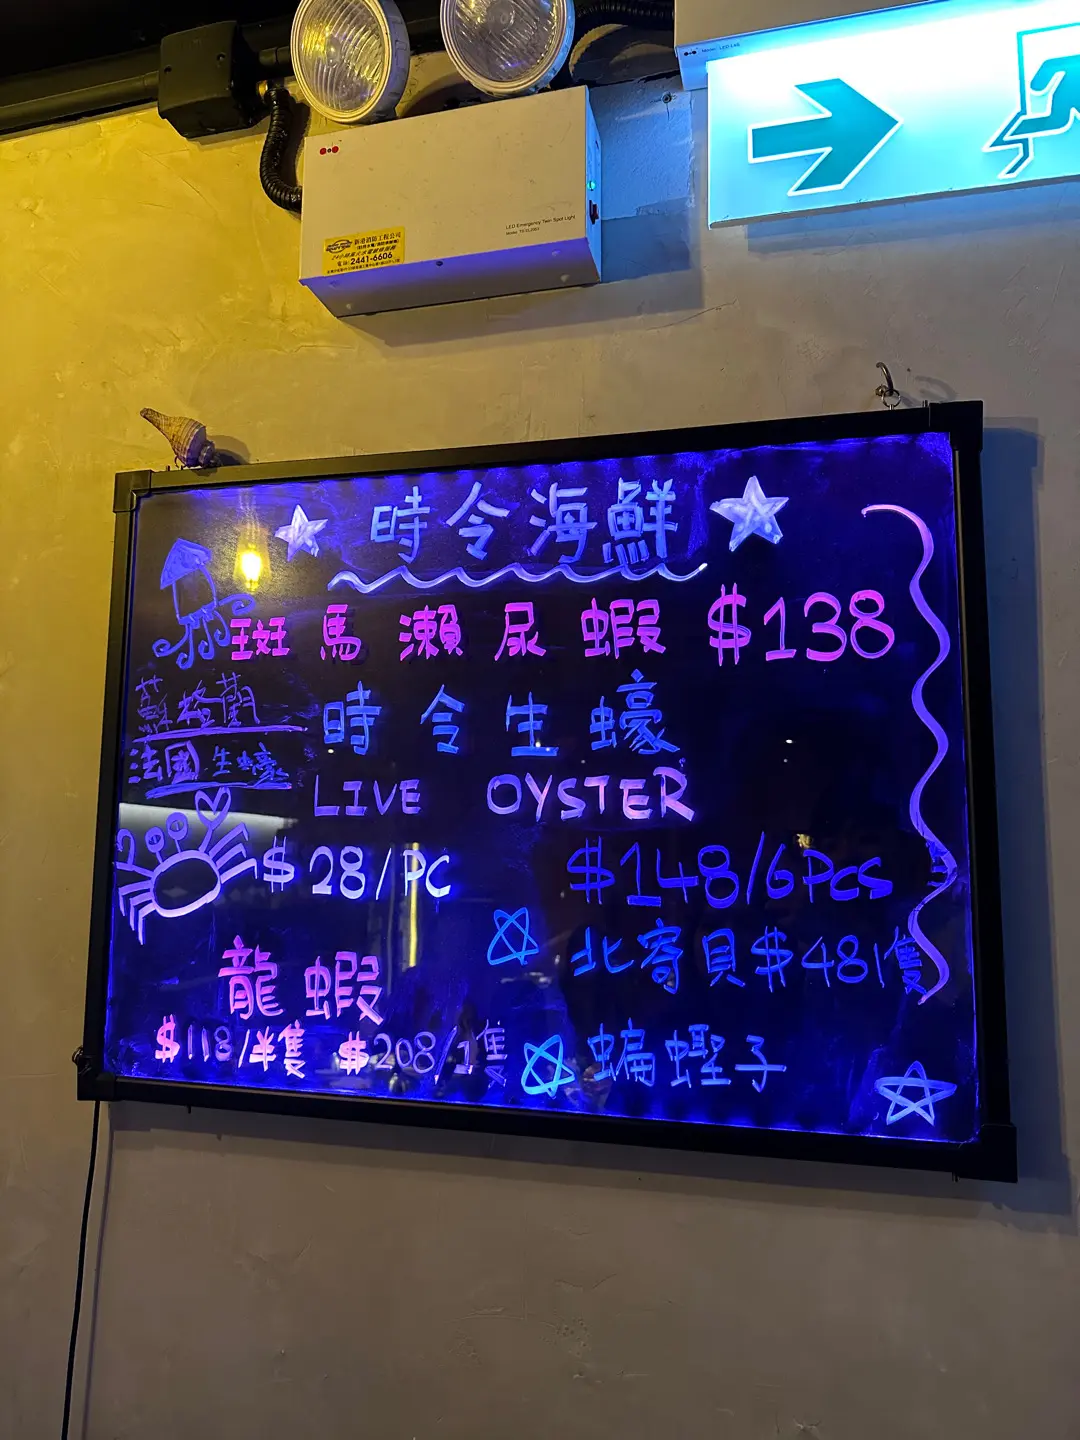 LED Emergency Twin Spot Light
新港消防工程公司
電話:2441-6606
時令海鮮
斑馬瀨尿蝦 $138
蘇格蘭
法國生蠔
時令生蠔
LIVE OYSTER
$28/PC $148/6Pcs
北寄貝$48/隻
龍蝦
$118/半隻 $208/1隻
蝙蟶子